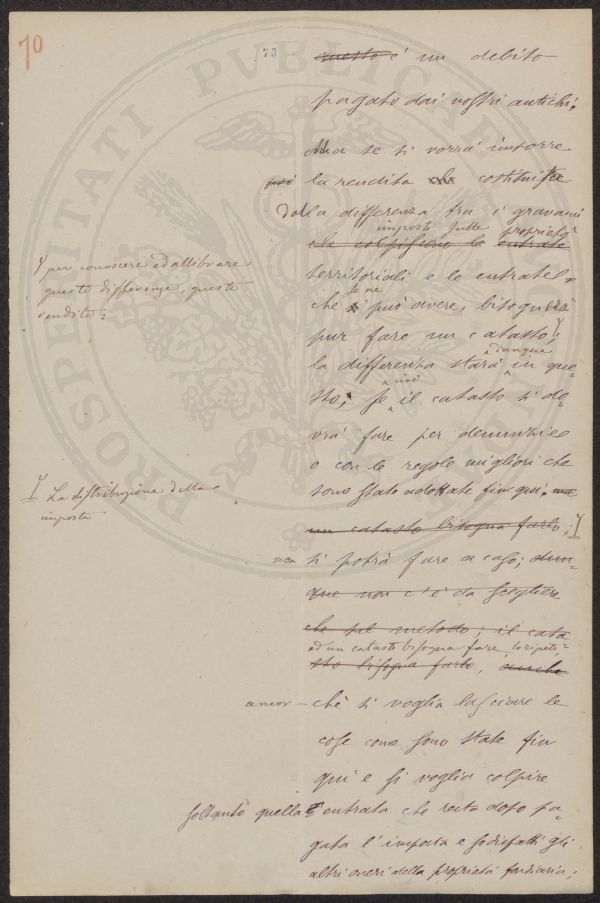 70
73
questo è un debito
pagato dai nostri antichi.
Ma se si vorrà imporre
la rendita che costituisce
Dalla differenza tra i gravami
imposti sulle proprietà
che colpiscono le entrate
territoriali e le entrate
che se ne può avere, bisognerà
pur fare un catasto,
per conoscere ed attribuire
queste differenze, queste
rendite:
la differenza starà dunque in que-
sto, se cioè il catasto si do-
vrà fare per denunzie
o con le regole migliori che
sono state adottate fin qui.
un catasto bisogna farlo,
La distribuzione della
imposta
non si potrà fare a caso; dun-
que non c'è da scegliere
che pel metodo; il cata
ad un catasto bisogna fare, ripeto,
sto bisogna farlo, anche
ancor-chè si voglia lasciare le
cose come sono state fin
qui e si voglia colpire
soltanto quella entrata che resta dopo pa-
gata l'imposta e sodisfatti gli
altri oneri della proprietà fondiaria;
PROSPERITATI PVBLICAE